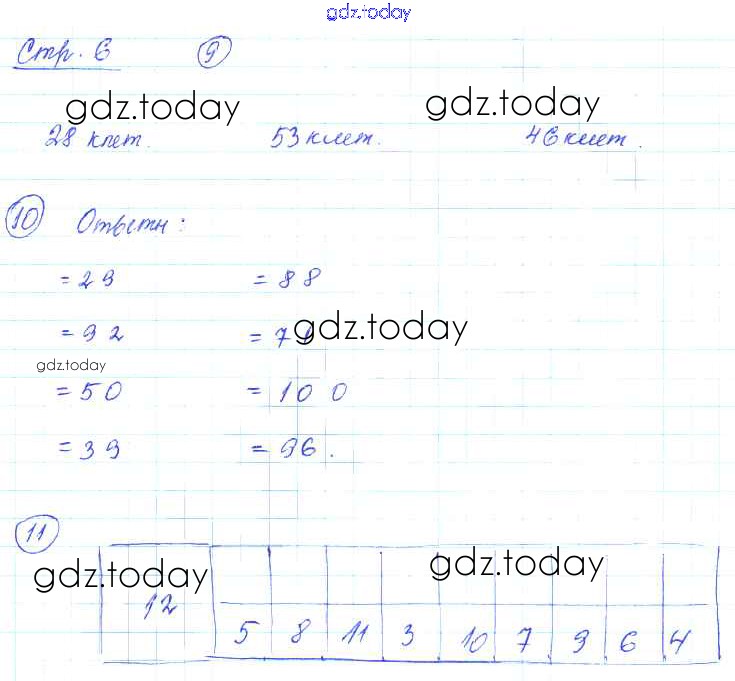 gdz.today
Стр. 6 9
gdz.today gdz.today
28 клет. 53 клет. 46 клет.
10 Ответы:
= 29 = 88
= 92 = 7
gdz.today
gdz.today
= 50 = 100
= 39 = 96.
11
gdz.today gdz.today
12
5 8 11 3 10 7 9 6 4